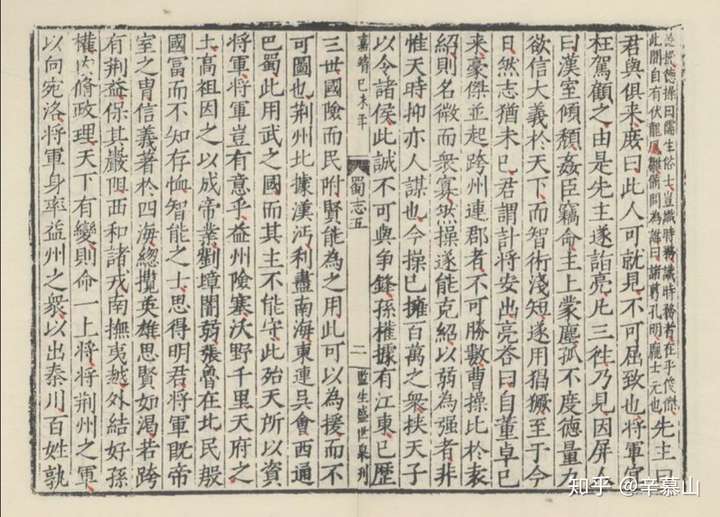 德操曰儒生俗士豈識時務識時務者在乎俊傑
此間自有伏龍鳳雛備問為誰曰諸葛孔明龐士元也
先主曰
君與俱來庶曰此人可就見不可屈致也將軍宜
枉駕顧之由是先主遂詣亮凡三往乃見因屏人
曰漢室傾頹姦臣竊命主上蒙塵孤不度德量力
欲信大義於天下而智術淺短遂用猖獗至于今
日然志猶未已君謂計將安出亮荅曰自董卓已
來豪傑並起跨州連郡者不可勝數曹操比於袁
紹則名微而衆寡然操遂能克紹以弱為強者非
惟天時抑亦人謀也今操已擁百萬之衆挾天子
以令諸侯此誠不可與争鋒孫權據有江東已歷
嘉靖己未年
蜀志五
二
監生盛世泉刊
三世國險而民附賢能為之用此可以為援而不
可圖也荆州北據漢沔利盡南海東連吳會西通
巴蜀此用武之國而其主不能守此殆天所以資
將軍將軍豈有意乎益州險塞沃野千里天府之
土高祖因之以成帝業劉璋闇弱張魯在北民殷
國富而不知存恤智能之士思得明君將軍既帝
室之胄信義著於四海緫攬英雄思賢如渴若跨
有荆益保其巖阻西和諸戎南撫夷越外結好孫
權内脩政理天下有變則命一上將將荆州之軍
以向宛洛將軍身率益州之衆以出秦川百姓孰
知乎 @辛慕山